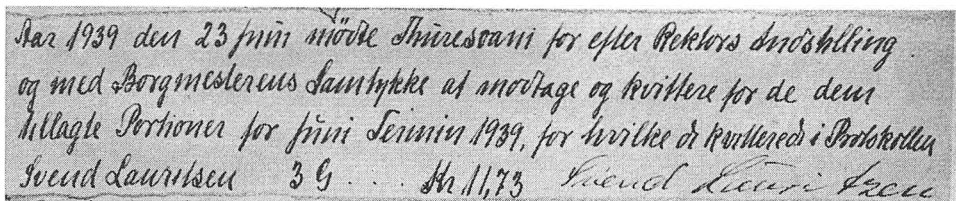 Aar 1939 den 23 Juni mødte Thuresvani for efter Rektors Indstilling
og med Borgmesterens Samtykke at modtage og kvittere for de dem
tillagte Portioner for Juni Termin 1939, for hvilke de kvitterede i Protokollen
Svend Lauritsen 3 G . . . . Kr. 11,73 Svend Lauritzen